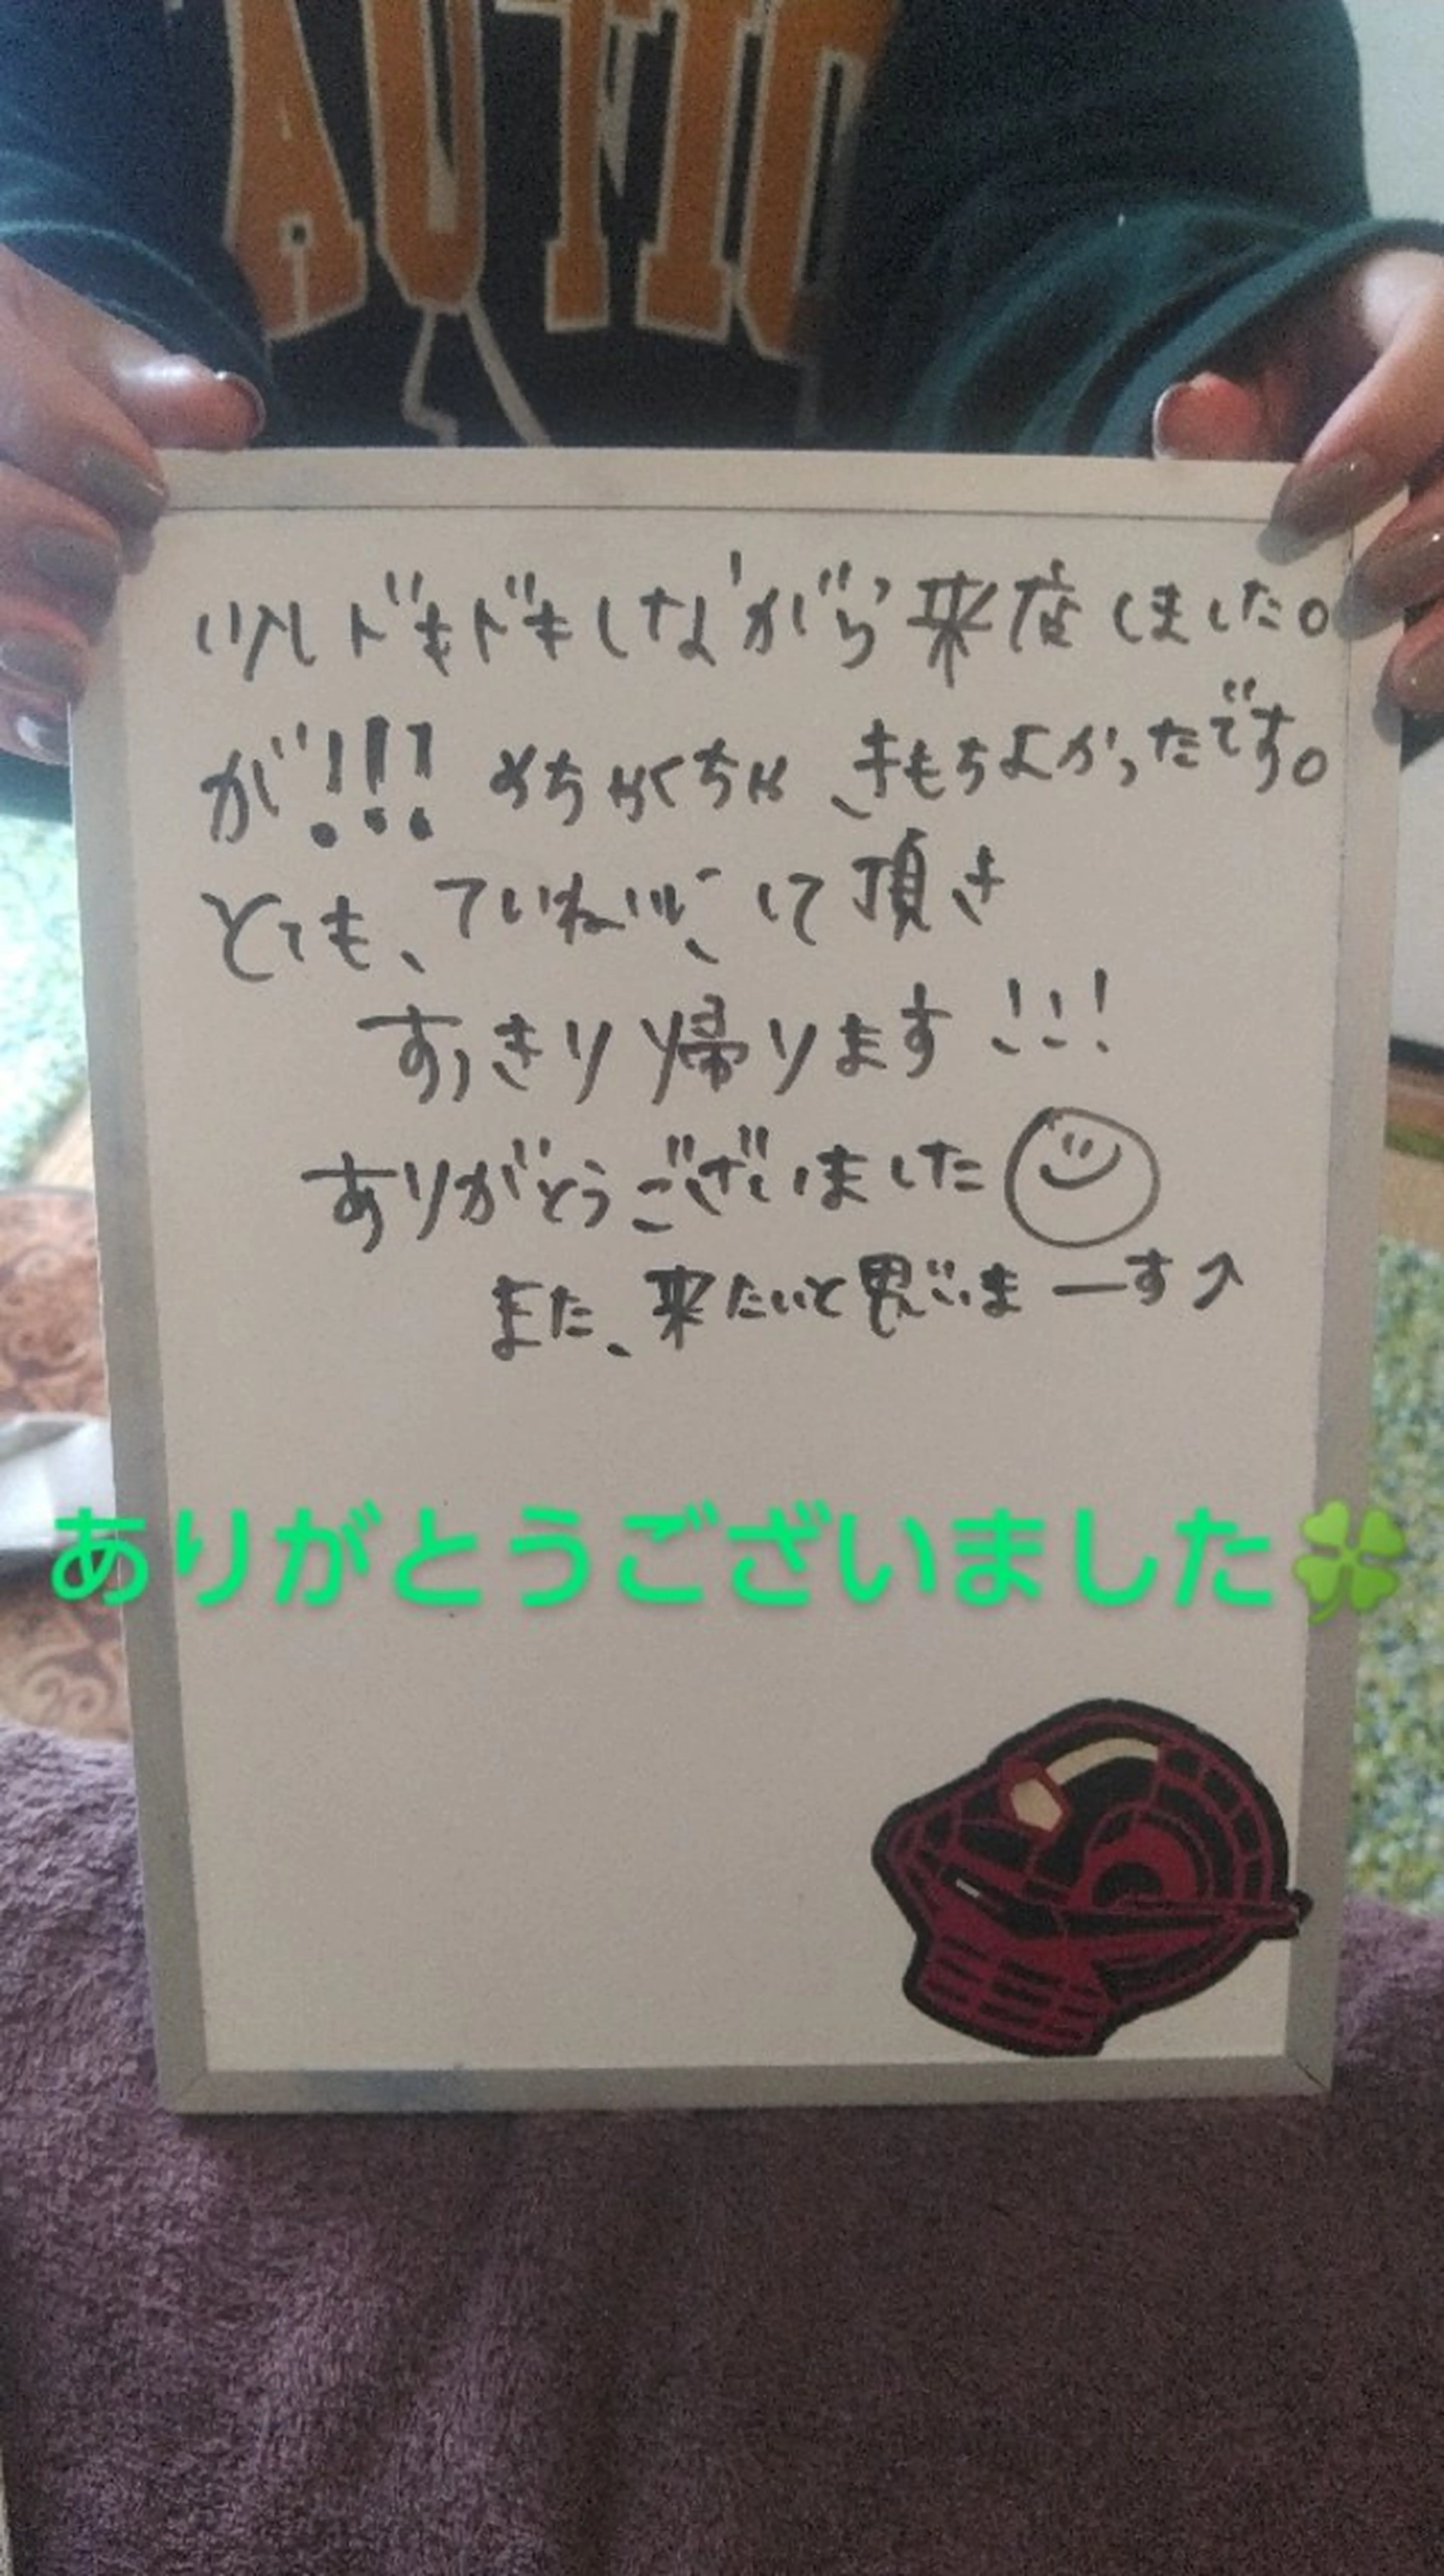 AUTIC
少しドキドキしながら来店しました。
が!!! めちゃくちゃ きもちよかったです。
とても、ていねいにして頂き
すっきり帰ります!!!
ありがとうございました
また、来たいと思いまーす↗
ありがとうございました🍀